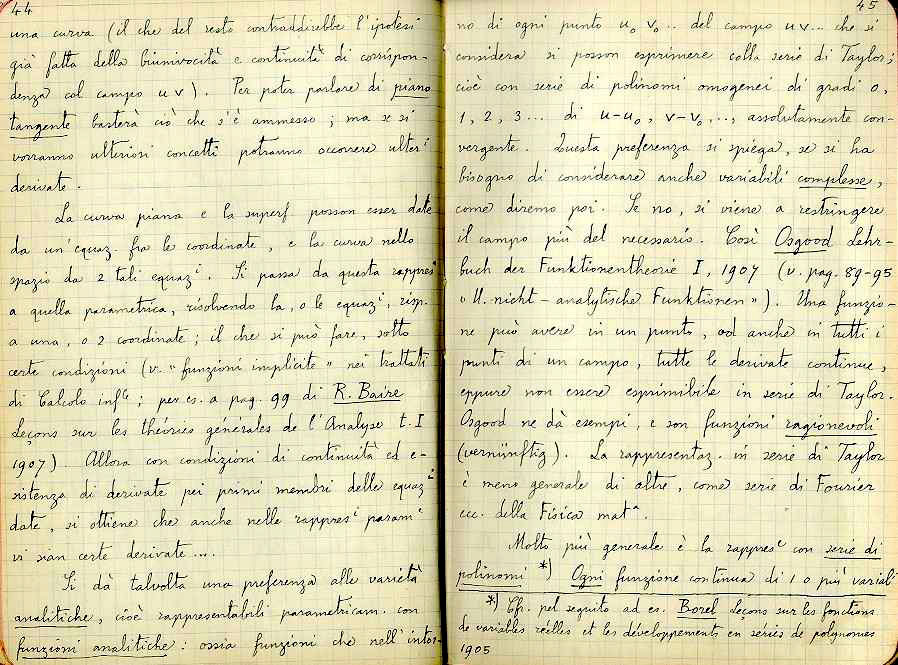 44
una curva (il che del resto contraddirebbe l'ipotesi
già fatta della biunivocità e continuità di corrispon-
denza col campo u v). Per poter parlare di piano
tangente basterà ciò che s'è ammesso; ma se si
vorranno ulteriori concetti potranno occorrere ulteri
derivate.
La curva piana e la superf. posson esser date
da un'equaz. fra le coordinate, e la curva nello
spazio da 2 tali equazi. Si passa da questa rappres
a quella parametrica, risolvendo la, o le equazi, risp.
a una, o 2 coordinate; il che si può fare, sotto
certe condizioni (v. "funzioni implicite" nei trattati
di Calcolo infle; per es. a pag. 99 di R. Baire
Leçons sur les théories générales de l'Analyse t. I
1907). Allora con condizioni di continuità ed e-
sistenza di derivate pei primi membri delle equazi
date, si ottiene che anche nelle rappresi parami
vi sian certe derivate....
Si dà talvolta una preferenza alle varietà
analitiche, cioè rappresentabili parametricam. con
funzioni analitiche: ossia funzioni che nell'intor-
45
no di ogni punto u₀ v₀.. del campo u v... che si
considera si posson esprimere colla serie di Taylor;
cioè con serie di polinomi omogenei di gradi 0,
1, 2, 3... di u-u₀, v-v₀..., assolutamente con-
vergente. Questa preferenza si spiega, se si ha
bisogno di considerare anche variabili complesse,
come diremo poi. Se no, si viene a restringere
il campo più del necessario. Così Osgood Lehr-
buch der Funktionentheorie I, 1907 (v. pag. 89-95
"U. nicht-analytische Funktionen"). Una funzio-
ne può avere in un punto, od anche in tutti i
punti di un campo, tutte le derivate continue,
eppure non essere esprimibile in serie di Taylor.
Osgood ne dà esempi, e son funzioni ragionevoli
(vernünftig). La rappresentaz. in serie di Taylor
è meno generale di altre, come serie di Fourier
ecc. della Fisica mata.
Molto più generale è la rappres^e con serie di
polinomi *) Ogni funzione continua di 1 o più variabi
*) Cfr. pel seguito ad es. Borel Leçons sur les fonctions
de variables réelles et les développements en séries de polynomes
1905